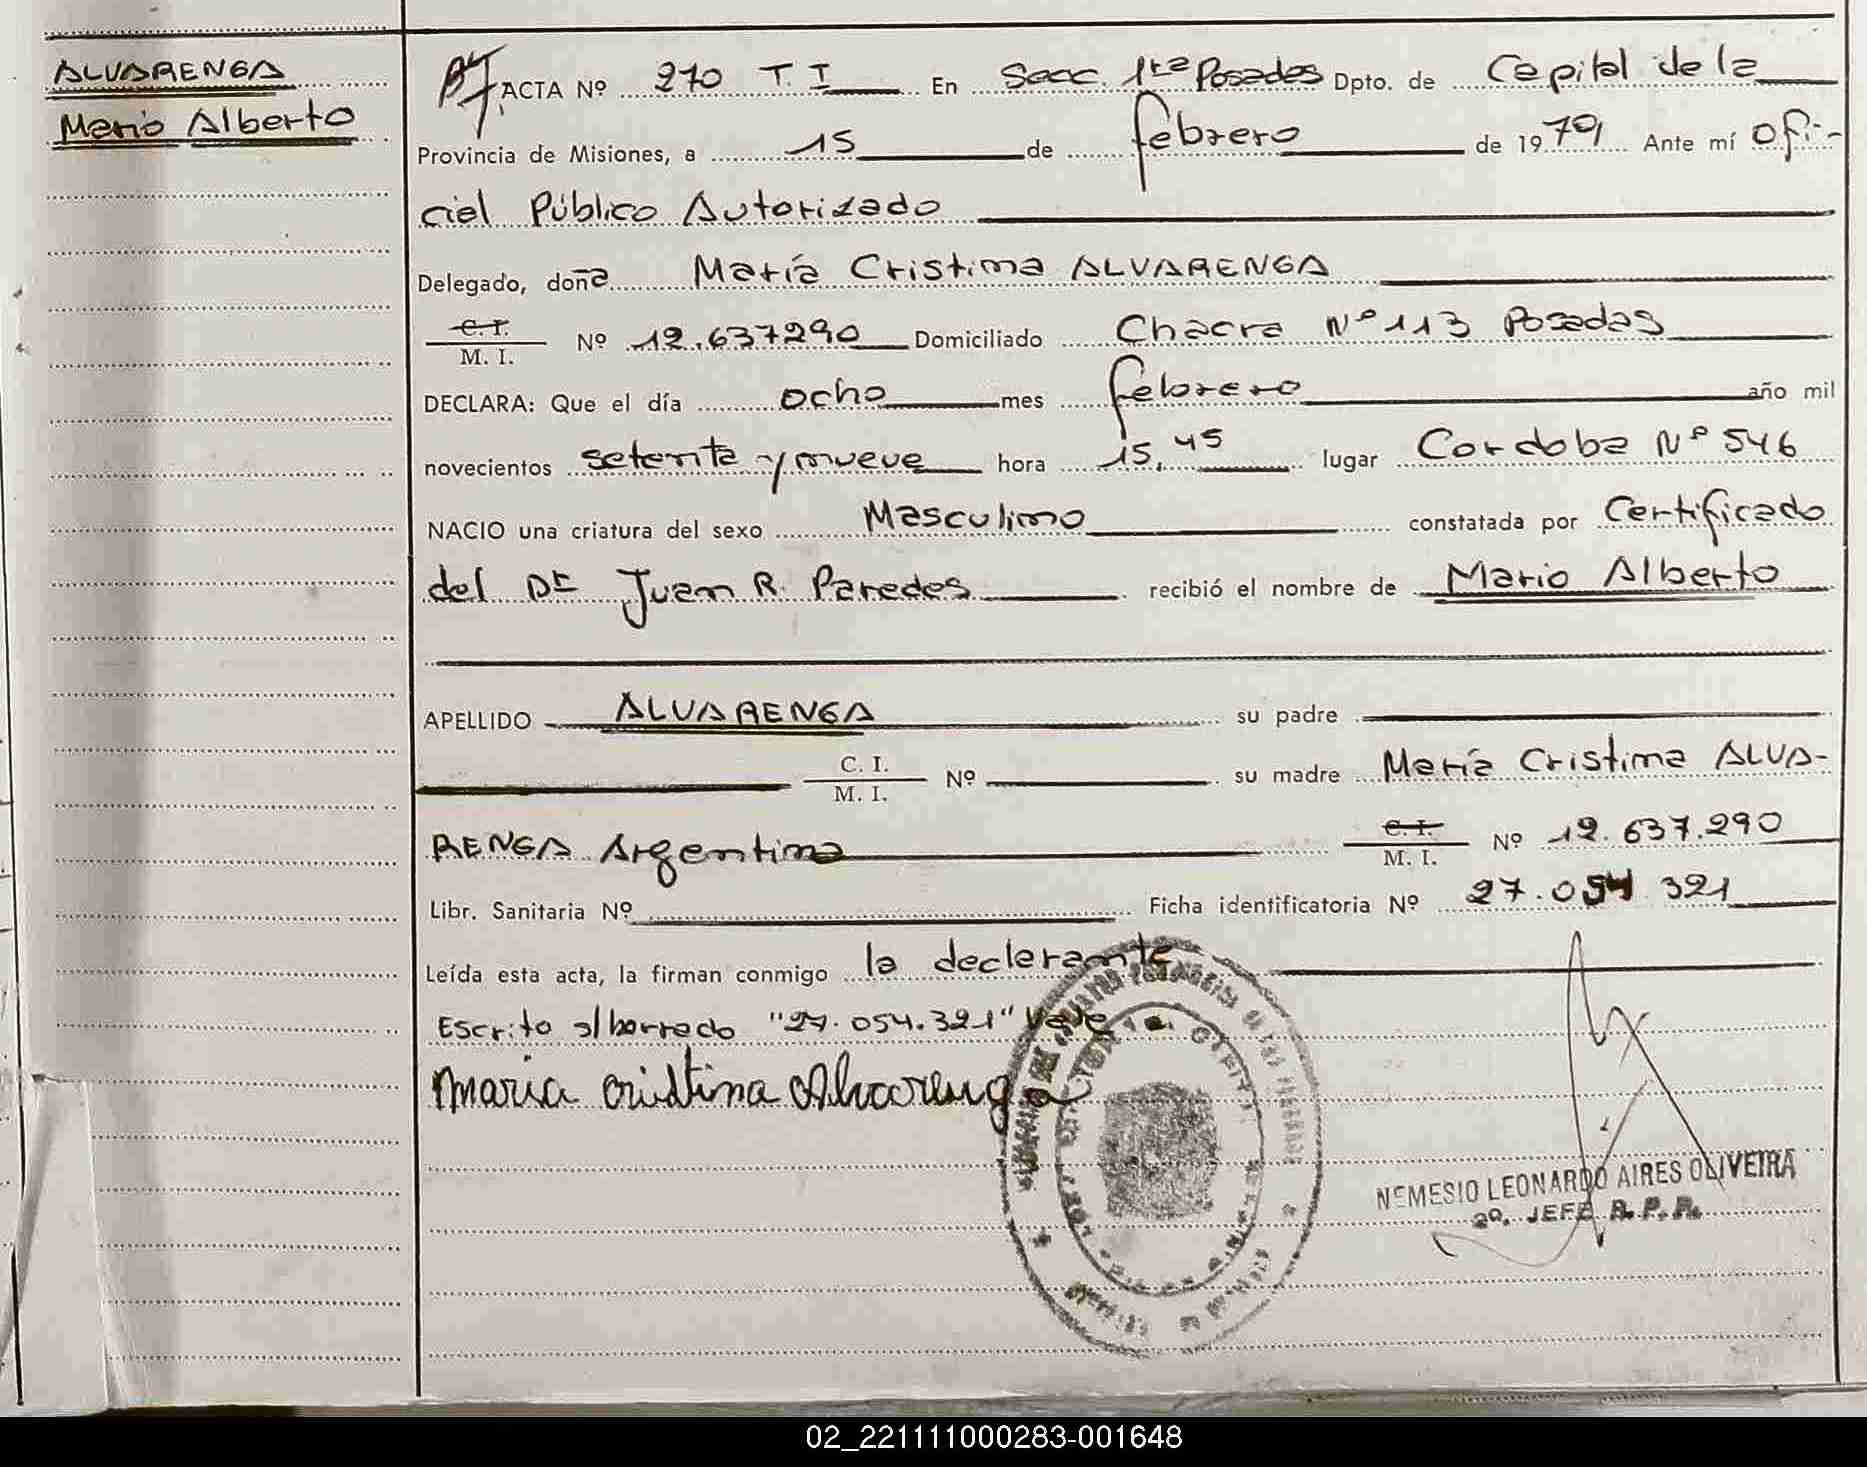 ALVARENGA
Mario Alberto
ACTA Nº 270 T. I En Secc. 1ra Posadas Dpto. de Capital de la
Provincia de Misiones, a 15 de febrero de 1979 Ante mí Ofi-
cial Público Autorizado
Delegado, doña María Cristina ALVARENGA
C. I. / M. I. Nº 12.637290 Domiciliado Chacra Nº 113 Posadas
DECLARA: Que el día ocho mes febrero año mil
novecientos setenta y nueve hora 15,45 lugar Cordoba Nº 546
NACIO una criatura del sexo Masculino constatada por Certificado
del Dr Juan R. Paredes recibió el nombre de Mario Alberto
APELLIDO ALVARENGA su padre
C. I. / M. I. Nº su madre María Cristina ALVA-
RENGA Argentina C. I. / M. I. Nº 12.637.290
Libr. Sanitaria Nº Ficha identificatoria Nº 27.054 321
Leída esta acta, la firman conmigo la declarante
Escrito s/borrado "27.054.321" Vale
Maria Cristina Alvarenga
NEMESIO LEONARDO AIRES OLIVEIRA
2º. JEFE R. P. P.
02_221111000283-001648